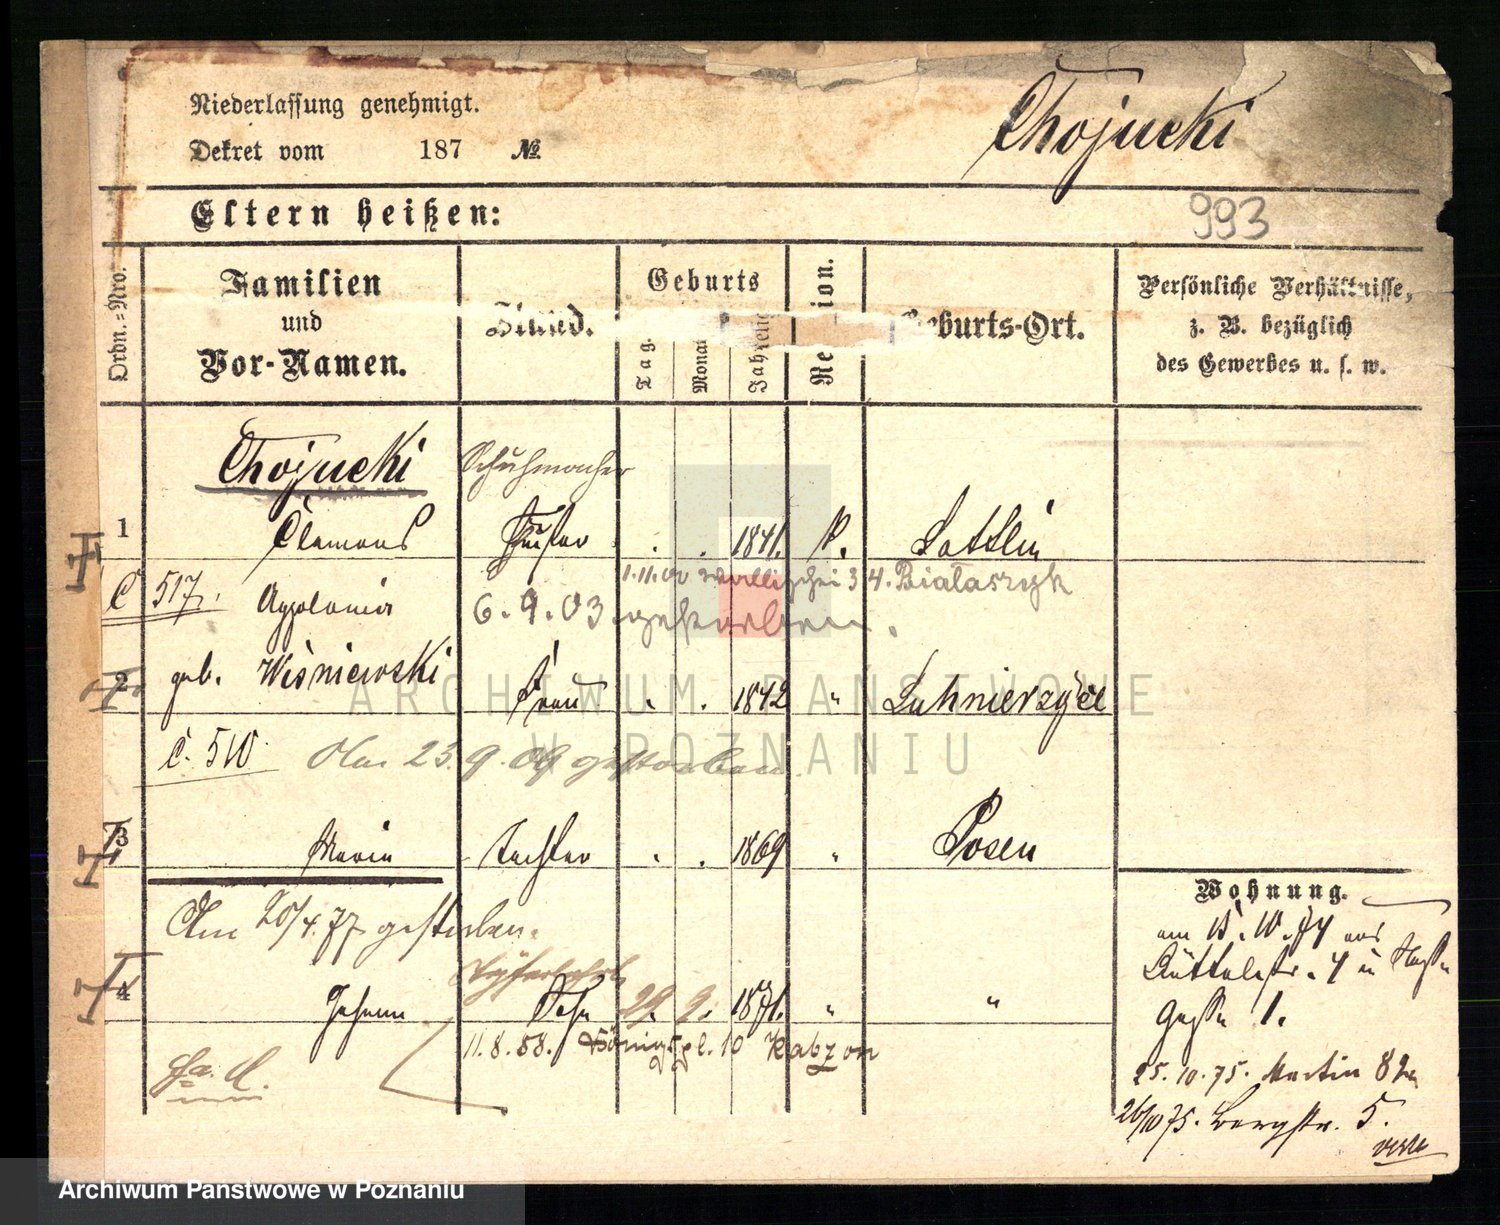 Niederlassung genehmigt.
Dekret vom 187 №
Chojucki
Eltern heißen:
993
Ordn.=Nro.
Familien
und
Vor-Namen.
Stand.
Geburts
Tag
Monat
Jahr
Religion.
Geburts-Ort.
Persönliche Verhältnisse,
z. B. bezüglich
des Gewerbes u. s. w.
Chojucki Schuhmacher
1 Clemens . . 1841. k.
1.11.00 Wallischei 34. Białaszyk
C 517. Appolonia 6.9.03 gestorben.
2 geb. Wiśniewski Frau . . 1842 "
C. 510 23.9.09 gestorben
3 Maria Tochter . . 1869 " Posen
Am 20/4.77 gestorben.
4 Johann Sohn 29. 9. 1871. " "
11.8.88. Königspl. 10 Kabzon
Wohnung.
am 15.10.74 aus
Büttelstr. 4 in
Gasse 1.
25.10.75. Martin 82
26/10 75. Bergstr. 5.
ARCHIWUM PAŃSTWOWE
W POZNANIU
Archiwum Państwowe w Poznaniu